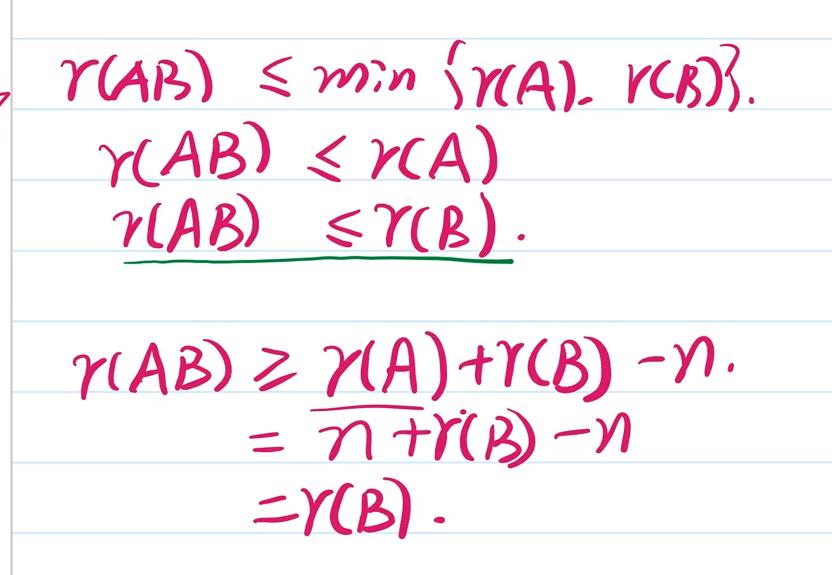 r(AB) ≤ min {r(A). r(B)}.
r(AB) ≤ r(A)
r(AB) ≤ r(B).
r(AB) ≥ r(A)+r(B) -n.
= n +r(B) -n
=r(B).